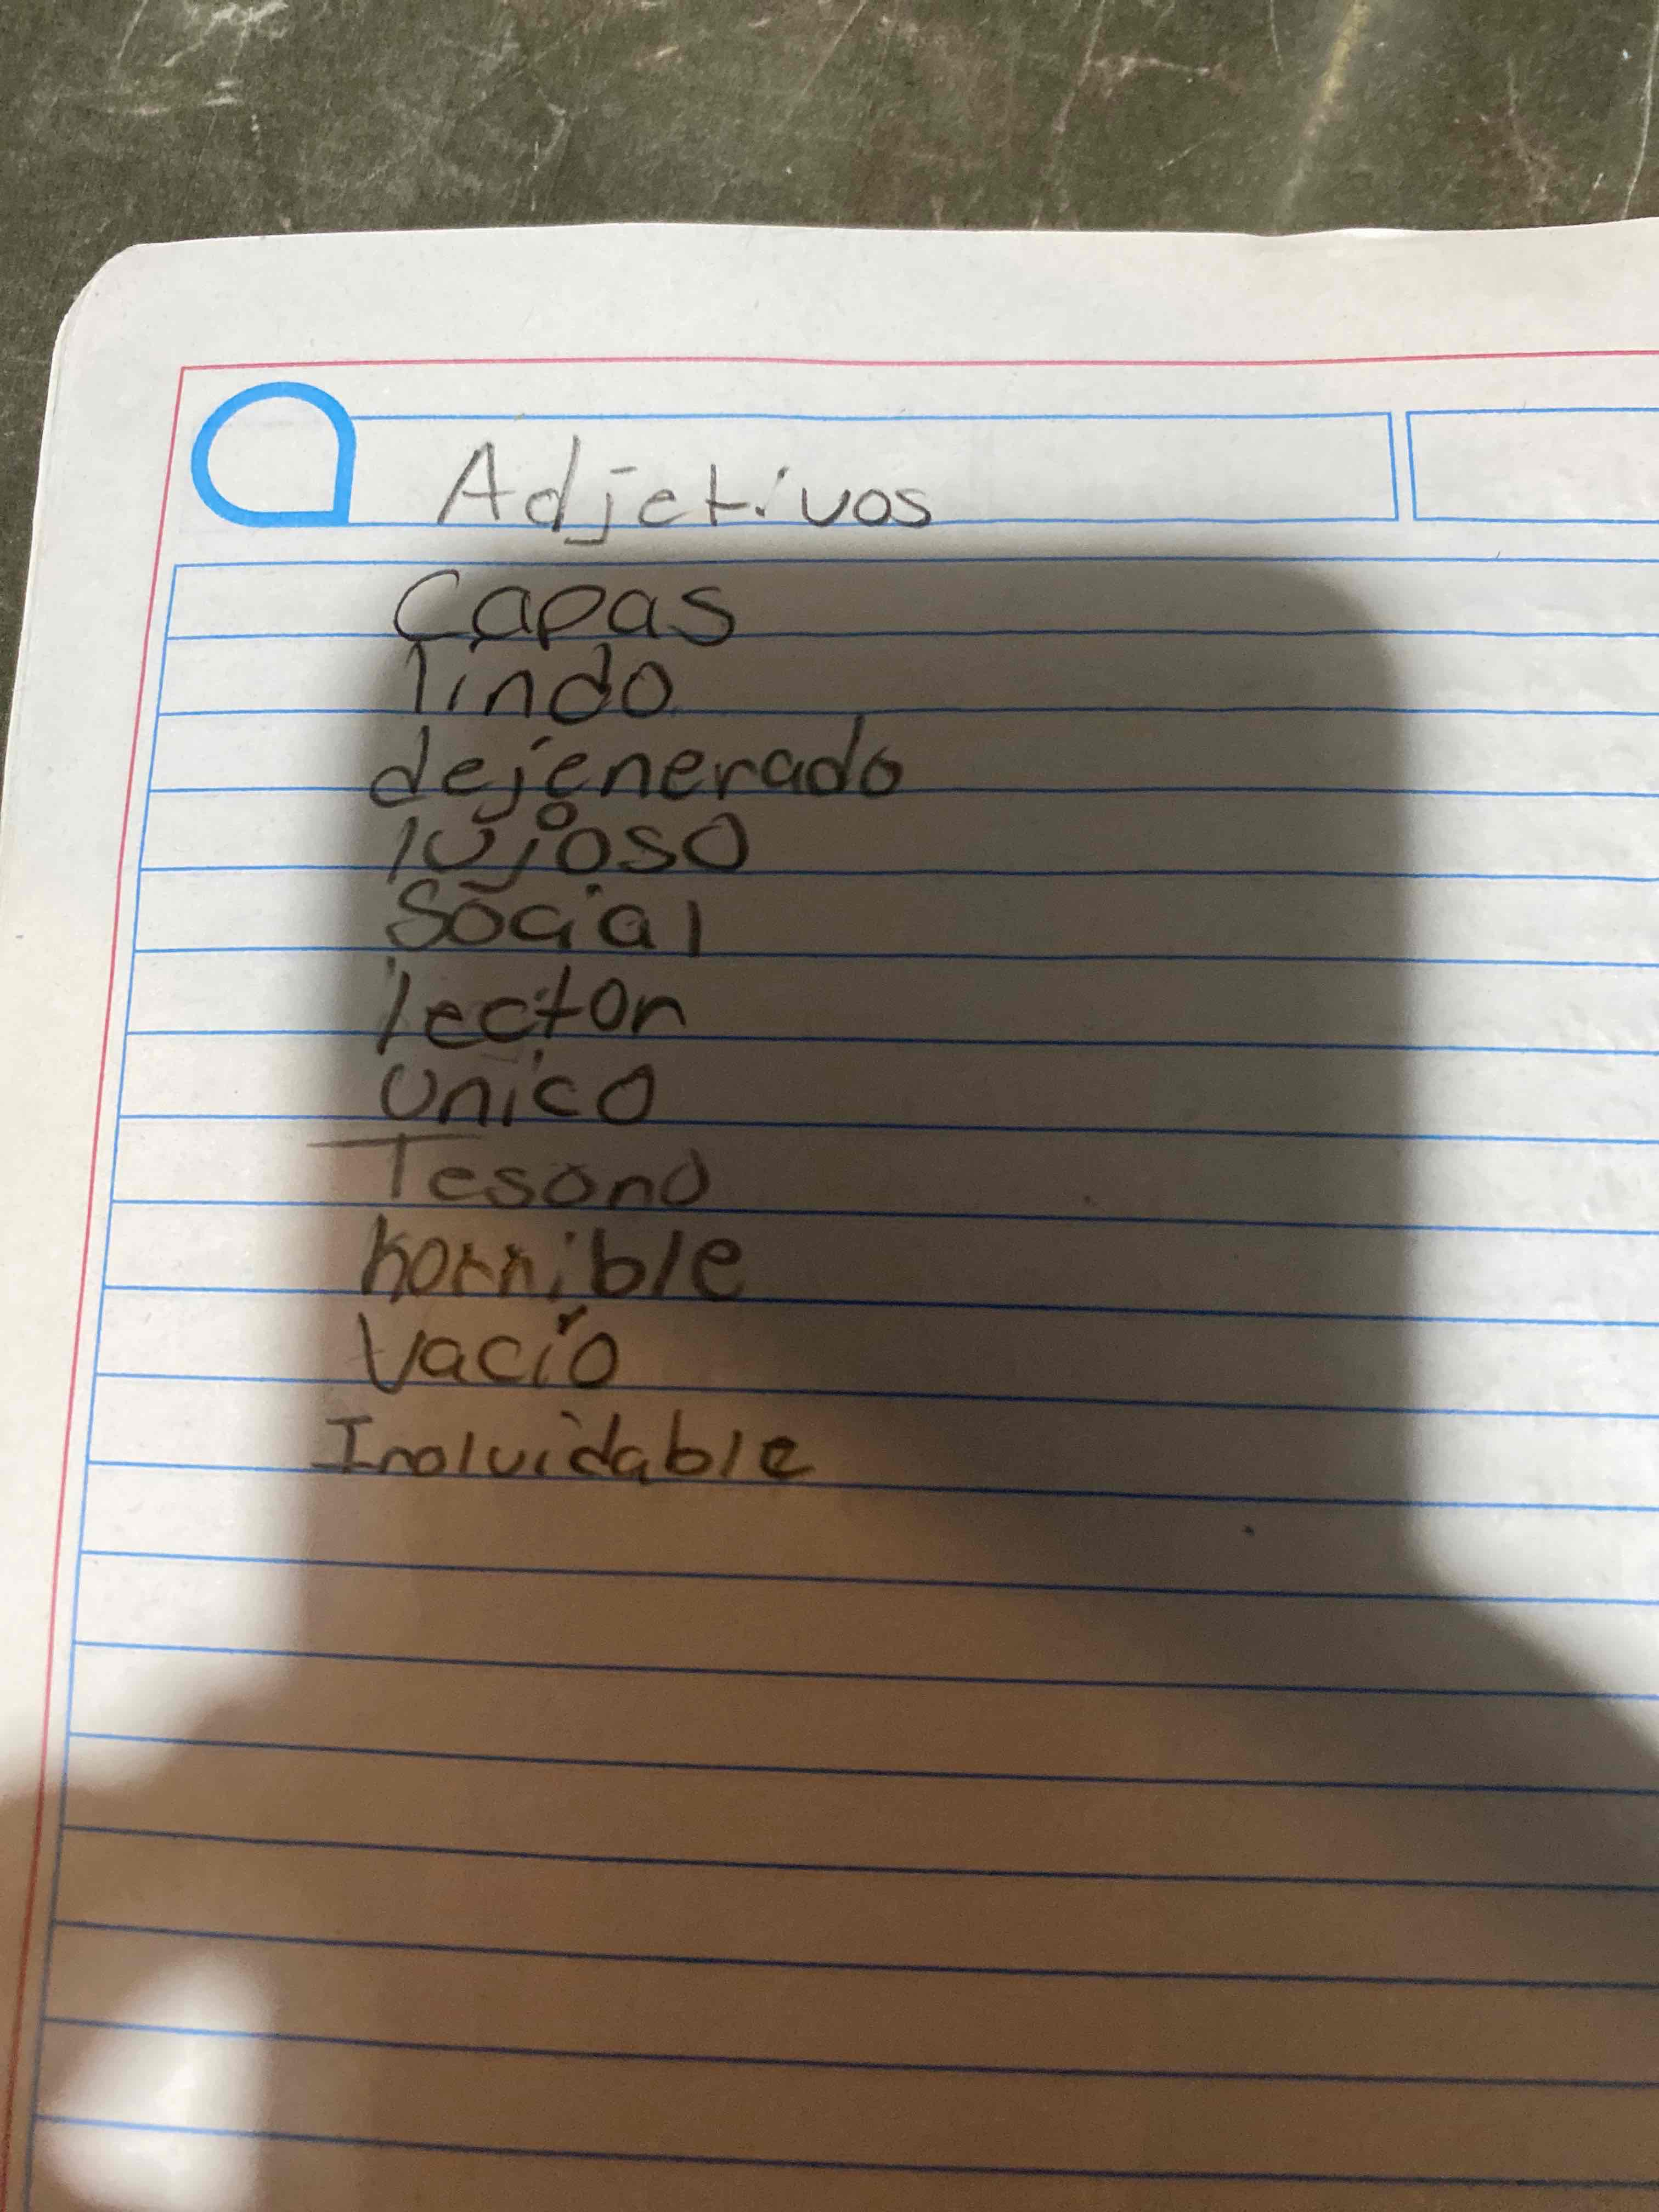 Adjetivos
Capas
lindo
dejenerado
lujoso
Social
lector
unico
Tesoro
horrible
Vacío
Inoluidable